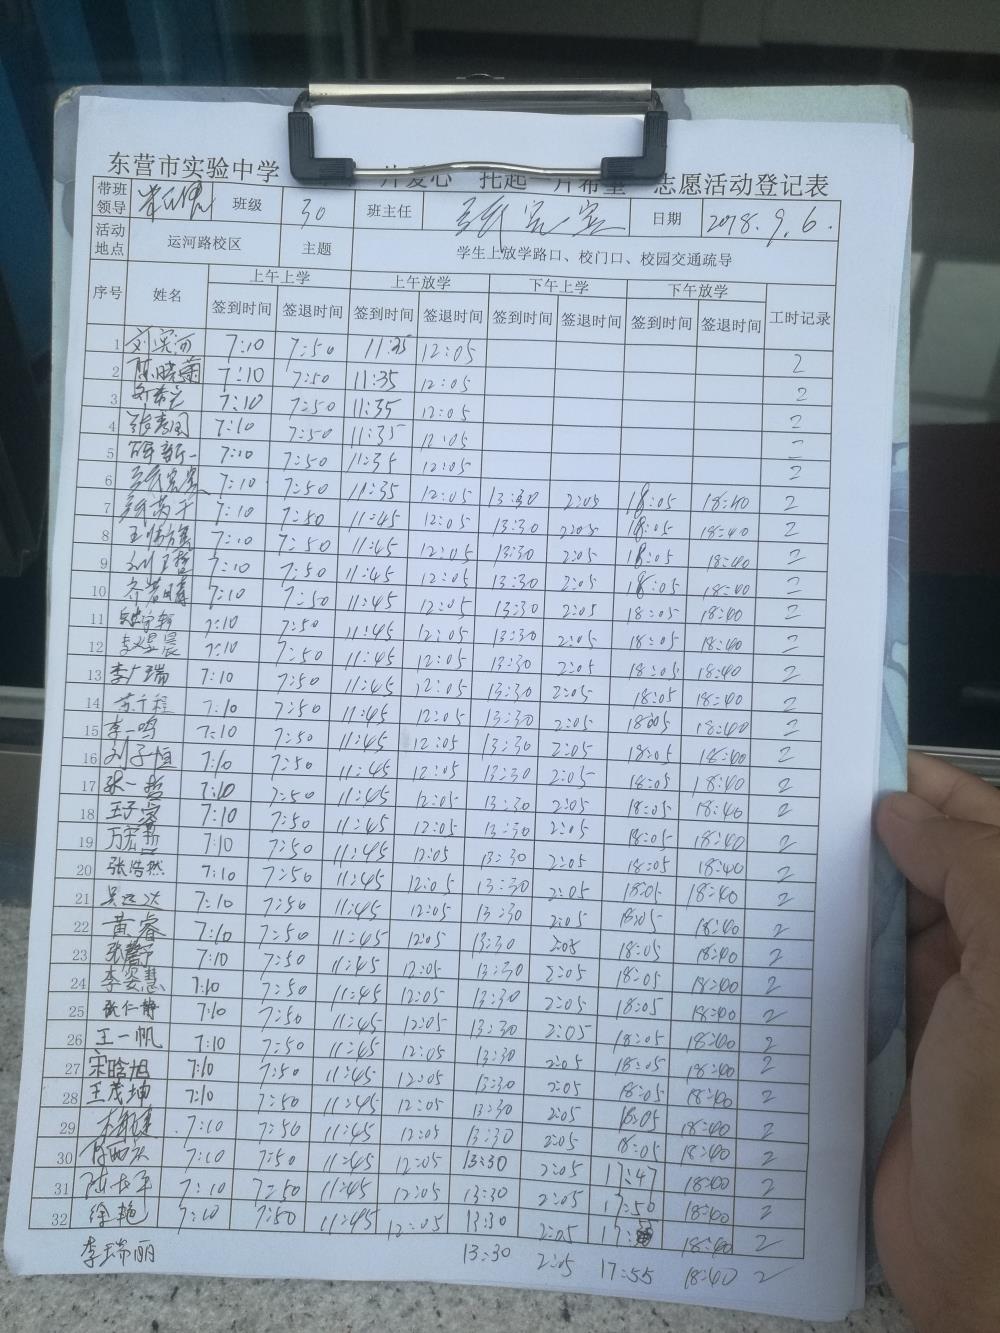 东营市实验中学 片爱心 托起一片希望 志愿活动登记表
带班领导 班级 30 班主任 张宾宾 日期 2018.9.6.
活动地点 运河路校区 主题 学生上放学路口、校门口、校园交通疏导
序号 姓名 上午上学 上午放学 下午上学 下午放学 工时记录
签到时间 签退时间 签到时间 签退时间 签到时间 签退时间 签到时间 签退时间
1 7:10 7:50 11:35 12:05 2
2 陈晓蕾 7:10 7:50 11:35 12:05 2
3 7:10 7:50 11:35 12:05 2
4 7:10 7:50 11:35 12:05 2
5 7:10 7:50 11:35 12:05 2
6 7:10 7:50 11:35 12:05 13:30 2:05 18:05 18:40 2
7 7:10 7:50 11:45 12:05 13:30 2:05 18:05 18:40 2
8 7:10 7:50 11:45 12:05 13:30 2:05 18:05 18:40 2
9 7:10 7:50 11:45 12:05 13:30 2:05 18:05 18:40 2
10 7:10 7:50 11:45 12:05 13:30 2:05 18:05 18:40 2
11 7:10 7:50 11:45 12:05 13:30 2:05 18:05 18:40 2
12 7:10 7:50 11:45 12:05 13:30 2:05 18:05 18:40 2
13 李广瑞 7:10 7:50 11:45 12:05 13:30 2:05 18:05 18:40 2
14 7:10 7:50 11:45 12:05 13:30 2:05 18:05 18:40 2
15 李一鸣 7:10 7:50 11:45 12:05 13:30 2:05 18:05 18:40 2
16 刘子恒 7:10 7:50 11:45 12:05 13:30 2:05 18:05 18:40 2
17 7:10 7:50 11:45 12:05 13:30 2:05 18:05 18:40 2
18 王子睿 7:10 7:50 11:45 12:05 13:30 2:05 18:05 18:40 2
19 7:10 7:50 11:45 12:05 13:30 2:05 18:05 18:40 2
20 张浩然 7:10 7:50 11:45 12:05 13:30 2:05 18:05 18:40 2
21 吴迈达 7:10 7:50 11:45 12:05 13:30 2:05 18:05 18:40 2
22 黄睿 7:10 7:50 11:45 12:05 13:30 2:05 18:05 18:40 2
23 7:10 7:50 11:45 12:05 13:30 2:05 18:05 18:40 2
24 李姿慧 7:10 7:50 11:45 12:05 13:30 2:05 18:05 18:40 2
25 张仁静 7:10 7:50 11:45 12:05 13:30 2:05 18:05 18:40 2
26 王一帆 7:10 7:50 11:45 12:05 13:30 2:05 18:05 18:40 2
27 宋晗旭 7:10 7:50 11:45 12:05 13:30 2:05 18:05 18:40 2
28 王茂坤 7:10 7:50 11:45 12:05 13:30 2:05 18:05 18:40 2
29 7:10 7:50 11:45 12:05 13:30 2:05 18:05 18:40 2
30 7:10 7:50 11:45 12:05 13:30 2:05 17:47 18:40 2
31 7:10 7:50 11:45 12:05 13:30 2:05 17:50 18:40 2
32 徐艳 7:10 7:50 11:45 12:05 13:30 2:05 18:40 2
李瑞丽 13:30 2:05 17:55 18:40 2